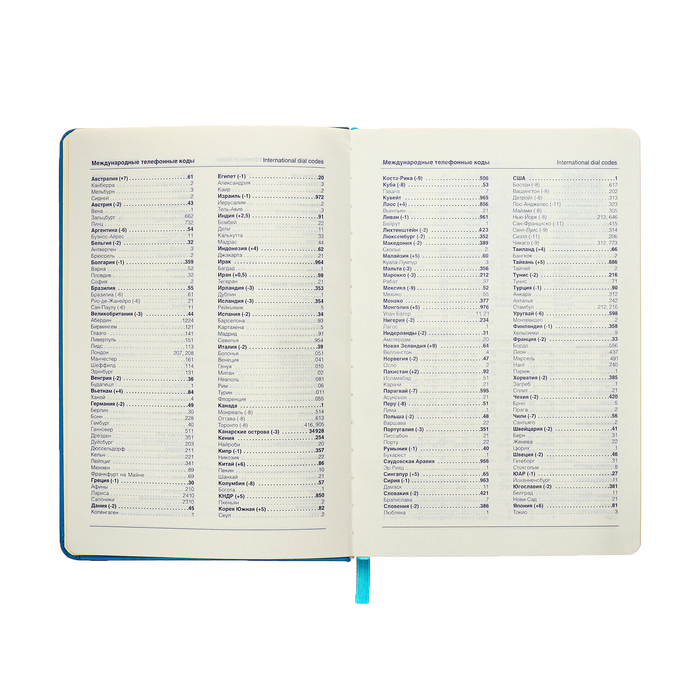 Международные телефонные коды International dial codes
Австралия (+7) 61
Канберра 2
Мельбурн 3
Сидней 2
Австрия (-2) 43
Вена 1
Зальцбург 662
Линц 732
Аргентина (-6) 54
Буэнос-Айрес 11
Бельгия (-2) 32
Антверпен 3
Брюссель 2
Болгария (-1) 359
Варна 52
Пловдив 32
София 2
Бразилия 55
Бразилиа (-6) 61
Рио-де-Жанейро (-6) 21
Сан-Паулу (-6) 11
Великобритания (-3) 44
Абердин 1224
Бирмингем 121
Глазго 141
Ливерпуль 151
Лидс 113
Лондон 207, 208
Манчестер 161
Шеффилд 114
Эдинбург 131
Венгрия (-2) 36
Будапешт 1
Вьетнам (+4) 84
Ханой 4
Германия (-2) 49
Берлин 30
Бонн 228
Гамбург 40
Ганновер 511
Дрезден 351
Дуйсбург 203
Дюссельдорф 211
Кельн 221
Лейпциг 341
Мюнхен 89
Франкфурт на Майне 69
Греция (-1) 30
Афины 210
Лариса 2410
Салоники 2310
Дания (-2) 45
Копенгаген 1
Египет (-1) 20
Александрия 3
Каир 2
Израиль (-1) 972
Иерусалим 2
Тель-Авив 3
Индия (+2,5) 91
Бомбей 22
Дели 11
Калькутта 33
Мадрас 44
Индонезия (+4) 62
Джакарта 21
Ирак 964
Багдад 1
Иран (+0,5) 98
Тегеран 21
Ирландия (-3) 353
Дублин 1
Исландия (-3) 354
Рейкьявик 1
Испания (-2) 34
Барселона 93
Картахена 5
Мадрид 91
Севилья 954
Италия (-2) 39
Болонья 051
Венеция 041
Генуя 010
Милан 02
Неаполь 081
Рим 06
Турин 011
Флоренция 055
Канада 1
Монреаль (-8) 514
Оттава (-8) 613
Торонто (-8) 416, 905
Канарские острова (-3) 34928
Кения 254
Найроби 20
Кипр (-1) 357
Никозия 22
Китай (+6) 86
Пекин 10
Шанхай 21
Колумбия (-8) 57
Богота 1
КНДР (+5) 850
Пхеньян 2
Корея Южная (+5) 82
Сеул 2
Международные телефонные коды International dial codes
Коста-Рика (-9) 506
Куба (-8) 53
Гавана 7
Кувейт 965
Лаос (+4) 856
Вьентьян 21
Ливан (-1) 961
Бейрут 1
Лихтенштейн (-2) 423
Люксембург (-2) 352
Македония (-2) 389
Скопье 2
Малайзия (+5) 60
Куала-Лумпур 3
Мальта (-2) 356
Марокко (-3) 212
Рабат 37
Мексика (-9) 52
Мехико 55
Монако 377
Монголия (+5) 976
Улан-Батор 11, 21
Лагос 1
Нидерланды (-2) 31
Амстердам 20
Новая Зеландия (+9) 64
Веллингтон 4
Норвегия (-2) 47
Осло 2
Пакистан (+2) 92
Исламабад 51
Карачи 21
Парагвай (-7) 595
Асунсьон 21
Перу (-8) 51
Лима 1
Польша (-2) 48
Варшава 22
Португалия (-3) 351
Лиссабон 21
Порту 22
Румыния (-1) 40
Бухарест 1
Саудовская Аравия 966
Эр Рияд 1
Сингапур (+5) 65
Сирия (-1) 963
Дамаск 11
Словакия (-2) 421
Братислава 7
Словения (-2) 386
Любляна 1
США 1
Бостон (-8) 617
Вашингтон (-8) 202
Детройт (-8) 313
Лос-Анджелес (-11) 323
Майами (-8) 305
Нью-Йорк (-8) 212, 646
Сан-Франциско (-11) 415
Сент-Луис (-9) 314
Сиэтл (-11) 206
Чикаго (-9) 312, 773
Таиланд (+4) 66
Бангкок 2
Тайвань (+5) 886
Тайпей 2
Тунис (-2) 216
Тунис 71
Турция (-1) 90
Анкара 312
Анталья 242
Стамбул 212, 216
Уругвай (-6) 598
Монтевидео 2
Финляндия (-1) 358
Хельсинки 9
Франция (-2) 33
Бордо 556
Лион 437
Марсель 491
Нант 240
Париж 1
Хорватия (-2) 385
Загреб 1
Сплит 21
Чехия (-2) 420
Брно 5
Прага 2
Чили (-7) 56
Сантьяго 2
Швейцария (-2) 41
Берн 31
Женева 22
Цюрих 1
Швеция (-2) 46
Гетеборг 31
Стокгольм 8
ЮАР (-1) 27
Йоханнесбург 11
Югославия (-2) 381
Белград 11
Нови-Сад 21
Япония (+6) 81
Токио 3